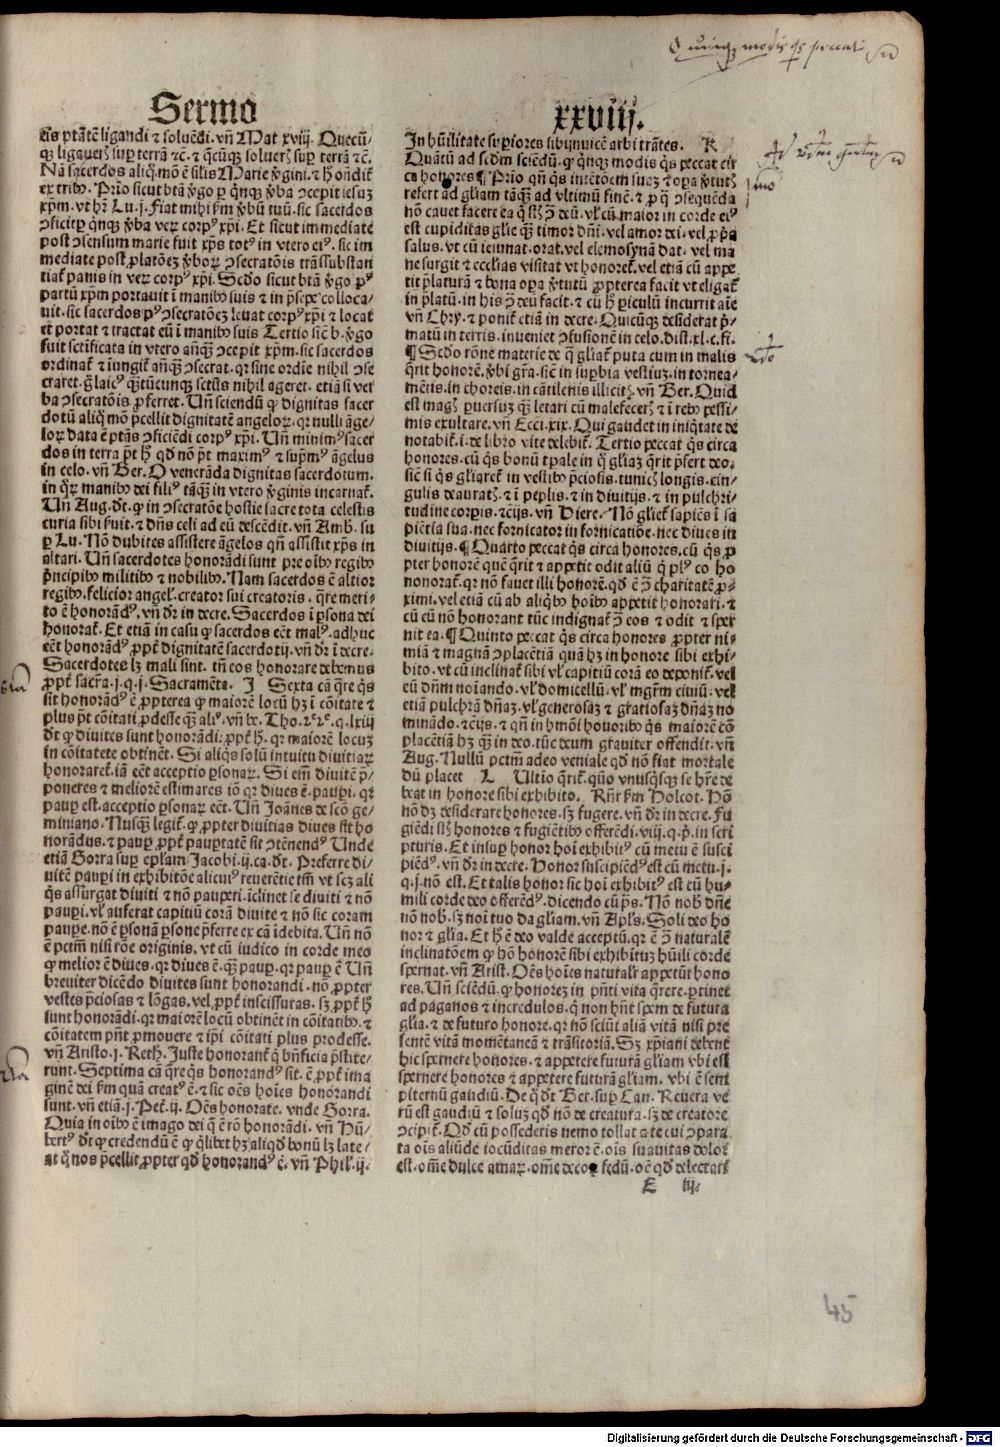 Quinq3 modis q̄s peccat
Sermo
xxviij.
eis ptātē ligandi ⁊ soluēdi. vn̄ Mat xviij. Quecū/
q3 ligaueri͛ suꝑ terrā ⁊c̄. ⁊ q̄cūq3 solueri͛ suꝑ terrā ⁊c̄.
Nā sacerdos aliq̄. mō ē silis Marie v̓gini. ⁊ hͦ oñdit᷑
ex tribꝰ. Prīo sicut btā v̓go ꝑ qn̄q3 v̓ba ↄcepit iesu3
xp̄m. vt hr̄ Lu. j. Fiat mihi ẜm v̓bū tuū. sic sacerdos
ↄficit ꝑ qn̄q3 v̓ba veꝝ corpꝰ xp̄i. Et sicut immediate
post ↄsensum marie fuit xp̄s totꝰ in vtero eiꝰ. sic im
mediate post ꝓlatōe3 v̓boꝝ ↄsecratōis trāssubstan
tiat᷑ panis in veꝝ corpꝰ xp̄i. Scd̓o sicut btā v̓go pꝰ
partū xp̄m portauit ī manibꝰ suis ⁊ in p̄sepe colloca/
uit. sic sacerdos pꝰ ↄsecratōe3 leuat corpꝰ xp̄i ⁊ locat
et portat ⁊ tractat eū ī manibꝰ suis Tertio sic̄ b. v̓go
fuit sctificata in vtero an̄q̄3 ↄcepit xp̄m. sic sacerdos
ordinat᷑ ⁊ iungit᷑ an̄q̄3 ↄsecrat. qr sine ordie nihil ↄse
craret. g̊ laicꝰ q̄3tūcunq3 sctūs nihil ageret. etiā si ver
ba ↄsecratōis ꝓferret. Vn̄ sciendū ꝙ dignitas sacer
dotū aliq̄ mō p̄cellit dignitatē angeloꝝ. qr nulli āge/
loꝝ data ē ptās ↄficiēdi corpꝰ xp̄i. Vn̄ minimꝰ sacer
dos in terra pt̄ hͦ qd̓ nō pt̄ maximꝰ ⁊ supmꝰ āgelus
in celo. vn̄ Ber. O venerāda dignitas sacerdotum.
in q̓ꝝ manibꝰ dei filiꝰ tāq̄3 in vtero v̓ginis incarnat᷑.
Vn̄ Aug. dt̄. ꝙ in ↄsecratōe hostie sacre tota celestis
curia sibi ẜuit. ⁊ dn̄s celi ad eū descēdit. vn̄ Amb. su
ꝑ Lu. Nō dubites assistere āgelos qn̄ assistit xp̄s in
altari. Vn̄ sacerdotes honorādi sunt pre oībꝰ regibꝰ
p̄ncipibꝰ militibꝰ ⁊ nobilibꝰ. Nam sacerdos ē altior
regibꝰ. felicior angel͛. creator sui creatoris. q̄re meri/
to ē honorādꝰ. vn̄ dr̄ in decre. Sacerdos ī ꝑsona dei
honorat᷑. Et etiā in casu ꝙ sacerdos eēt malꝰ. adhuc
eēt honorādꝰ ꝓpt᷑ dignitatē sacerdotij. vn̄ dr̄ ī decre.
Sacerdotes l3 mali sint. tn̄ eos honorare debemus
ꝓpt᷑ sacr̄a. j. q. j. Sacramēta. J Sexta cā q̄re q̄s
sit honorādꝰ ē ꝓpterea ꝙ maiorē locū h3 ī cōitate ⁊
plus pt̄ cōitati ꝓdesse q̄3 aliꝰ. vn̄ be. Tho. 2ᵉ2ᵉ. q. lxiij
dt̄ ꝙ diuites sunt honorādi. ꝓpt᷑ hͦ. qr maiorē locu3
in cōitatete obtinēt. Si aliq̄s solū intuitu diuitiaꝝ
honoraret᷑. iā eēt acceptio ꝑsonaꝝ. Si em̄ diuitē p̄/
poneres ⁊ meliorē estimares iō qr diues ē. pauꝑi. qr
pauꝑ est. acceptio ꝑsonaꝝ eēt. Vn̄ Joānes de scō ge/
miniano. Nusq̄3 legit᷑. ꝙ ꝓpter diuitias diues sit ho
norādus. ⁊ pauꝑ ꝓpt᷑ pauꝑtatē sit ↄtēnendꝰ Unde
etiā Gorra suꝑ ep̄lam Jacobi. ij. ca. dt̄. Preferre di/
uitē pauꝑi in exhibitōe alicuiꝰ reuerētie tm̄ vt sc3 ali
q̄s assurgat diuiti ⁊ nō pauꝑeri. īclinet se diuiti ⁊ nō
pauꝑi. vl̓ auferat capitiū corā diuite ⁊ nō sic coram
pauꝑe. nō ē ꝑsonā ꝑsone p̄ferre ex cā īdebita. Vn̄ nō
ē pctm̄ nisi rōe originis. vt cū iudico in corde meo
ꝙ melior ē diues. qr diues ē. q̄3 pauꝑ. qr pauꝑ ē Vn̄
breuiter dicēdo diuites sunt honorandi. nō ꝓpter
vestes p̄ciosas ⁊ lōgas. vel ꝓpt᷑ inscissuras. s3 ꝓpt᷑ hͦ
sunt honorādi. qr maiorē locū obtinēt in cōitatibꝰ. ⁊
cōitatem pn̄t ꝓmouere ⁊ ip̄i cōitati plus prodesse.
vn̄ Aristo. j. Reth. Juste honorant᷑ q̓ bn̄ficia p̄stite/
runt. Septima cā q̄re q̄s honorandꝰ sit. ē ꝓpt᷑ ima
ginē dei ẜm quā creatꝰ ē. ⁊ sic oēs hoīes honorandi
sunt. vn̄ etiā. j. Pet᷑. ij. Oēs honorate. vnde Gorra.
Quia in oībꝰ ē imago dei q̄ ē rō honorādi. vn̄ Hū/
bertꝰ dt̄ ꝙ credendū ē ꝙ q̓libet h3 aliqd̓ bonū l3 late/
at q̓ nos p̄cellit ꝓpter qd̓ honorandꝰ ē. vn̄ Phil͛. ij.
In hūilitate suꝑiores sibijnuicē arbitrātes. K
Quātū ad scd̓m sciēdū. ꝙ qn̄q3 modis q̄s peccat cir
ca honores ¶ Prīo qn̄ q̄s intētōem sua3 ⁊ oꝑa v̓tutꝭ
refert ad gl̓iam tāq̄3 ad vltimū finē. ⁊ ꝓ q̄ ↄsequēda
nō cauet facere ea q̄ sūt ↄ̄ deū. vl̓ cū maior in corde eiꝰ
est cupiditas gl̓ie q̄3 timor dn̄i. vel amor dei. vel ꝓpͥa
salus. vt cū ieiunat. orat. vel elemosynā dat. vel ma
ne surgit ⁊ ecclias visitat vt honoret᷑. vel etiā cū appe
tit p̄laturā ⁊ bona oꝑa v̓tutū ꝓpterea facit vt eligat᷑
in p̄latū. in his ↄ̄ deū facit. ⁊ cū hͦ ꝑiculū incurrit aīe
vn̄ Chry. ⁊ ponit᷑ etiā in decre. Quicūq3 desiderat p̓/
matū in terris. inueniet ↄfusionē in celo. dist. xl. c. fi.
¶ Scd̓o rōne materie de q̄ gl̓iat᷑ puta cum in malis
q̄rit honorē. v̓bi gr̄a. sic̄ in suꝑbia vestiu3. in tornea/
mētis. in choreis. in cātilenis illicitꝭ. vn̄ Ber. Quid
est magꝭ ꝑuersu3 q̄3 letari cū malefeceri͛ ⁊ ī rebꝰ pessi/
mis exultare. vn̄ Ecci. xix. Qui gaudet in iniq̄tate de
notabit᷑. i. de libro vite delebit᷑. Tertio peccat q̄s circa
honores. cū q̄s bonū tꝑale in q̄ gl̓ia3 q̄rit p̄fert deo.
sic̄ si q̄s gl̓iaret᷑ in vestibꝰ p̄ciosis. tunicꝭ longis. cin/
gulis deauratꝭ. ⁊ ī peplis. ⁊ in diuitijs. ⁊ in pulchri
tudine corꝑis. ⁊cijs. vn̄ Hiere. Nō gl̓iet᷑ sapiēs ī sa
piētia sua. nec fornicator in fornicatiōe. nec diues in
diuitijs. ¶ Quarto peccat q̄s circa honores. cū q̄s ꝓ
pter honorē quē q̄rit ⁊ appetit odit aliū q̓ plꝰ eo ho
norat᷑. qr nō fauet illi honorē. qd̓ ē ↄ̄ charitatē pͦ/
ximi. vel etiā cū ab aliq̓bꝰ hoībꝰ appetit honorari. ⁊
cū eū nō honorant tūc indignat᷑ ↄ̄ eos ⁊ odit ⁊ sper
nit ea. ¶ Quinto peccat q̄s circa honores ꝓpter ni/
miā ⁊ magnā ↄplacētiā quā h3 in honore sibi exhi/
bito. vt cū inclinat᷑ sibi vl̓ capitiū corā eo deponit᷑. vel
eū dn̄m noīando. vl̓ domicellū. vl̓ mgr̄m ciuiū. vel
etiā pulchrā dn̄a3. vl̓ generosa3 ⁊ gratiosa3 dn̄a3 no
minādo. ⁊cijs. ⁊ qn̄ in hmōi hōoribꝰ q̄s maiorē cō
placētiā h3 q̄3 in deo. tūc deum grauiter offendit. vn̄
Aug. Nullū pctm̄ adeo veniale qd̓ nō fiat mortale
dū placet L Vltio q̄rit᷑. quō vnusq̄sq3 se hr̄e de
beat in honore sibi exhibito. Rn̄r̄ ẜm Holcot. Hō
nō d3 desiderare honores. s3 fugere. vn̄ dr̄ in decre. Fu
giēdi sūt honores ⁊ fugiētibꝰ offerēdi. viij. q. p̄. in scri
pturis. Et insuꝑ honor hoī exhibitꝰ cū metu ē susci
piēdꝰ. vn̄ dr̄ in decre. Honor suscipiēdꝰ est cū metu. j.
q. j. nō est. Et talis honor sic hoī exhibitꝰ est cū hu/
mili corde deo offerēdꝰ. dicendo cū ps̄. Nō nob̓ dn̄e
nō nob̓. s3 noī tuo da gl̓iam. vn̄ Apl̓s. Soli deo ho
nor ⁊ gl̓ia. Et hͦ ē deo valde acceptū. qr ē ↄ̄ naturalē
inclinatōem ꝙ hō honorē sibi exhibitu3 hūili corde
spernat. vn̄ Arist. Oēs hoīes naturalr̄ appetūt hono
res. Vn̄ sciēdū. ꝙ honore3 in pn̄ti vita q̄rere. ꝑtinet
ad paganos ⁊ incredulos. q̓ non hn̄t spem de futura
gl̓ia. ⁊ de futuro honore. qr nō sciūt aliā vitā nisi pre
sentē vitā momētaneā ⁊ trāsitoriā. S3 xp̄iani debent
hic spernere honores. ⁊ appetere futurā gl̓iam vbi est
spernere honores ⁊ appetere futurā gl̓iam. vbi ē semꝑ
piternū gaudiū. De q̄ dt̄ Ber. suꝑ Can. Reuera ve
rū est gaudiū ⁊ solu3 qd̓ nō de creatura. s3 de creatore
ↄcipit᷑. Qd̓ cū possederis nemo tollat a te cui ↄpara
ta oīs aliūde iocūditas meror ē. oīs suauitas dolor
est. oīe dulce amaꝝ. oīe decoꝝ fedū. oē qd̓ delectari
E iij.
45
Digitalisierung gefördert durch die Deutsche Forschungsgemeinschaft - DFG